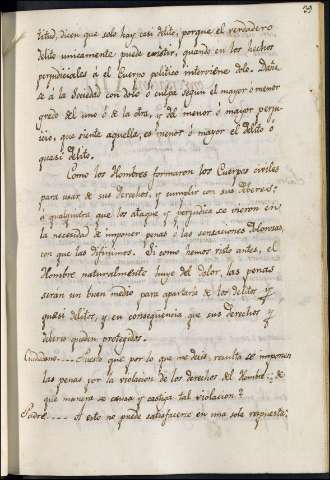 39
titud, dicen que solo hay casi delito, porque el verdadero
delito unicamente puede existir, quando en los hechos
perjudiciales á el Cuerpo politico interviene dolo. Dañe-
se á la Sociedad con dolo ó culpa segun el mayor o menor
grado del uno ó de la otra, y del menor ó mayor perju-
icio, que siente aquella, es menor ó mayor el delito ó
quasi delito.
Como los Hombres formaron los Cuerpos civiles
para usar de sus derechos, y cumplir con sus deberes;
á qualquiera que los ataque y perjudica se vieron en
la necesidad de imponer penas ó las sensaciones dolorosas,
con que las difinimos. Si como hemos visto antes, el
Hombre naturalmente huye del dolor, las penas
serán un buen medio para apartarle de los delitos y
quasi delitos, y en consequencia que sus derechos y
deberes queden protegidos.
Ciudadano.... Puesto que por lo que me decis, resulta se imponen
las penas por la violacion de los derechos del Hombre; de
que manera se causa y castiga tal violacion?
Padre..... A esto no puede satisfacerse en una sola respuesta;